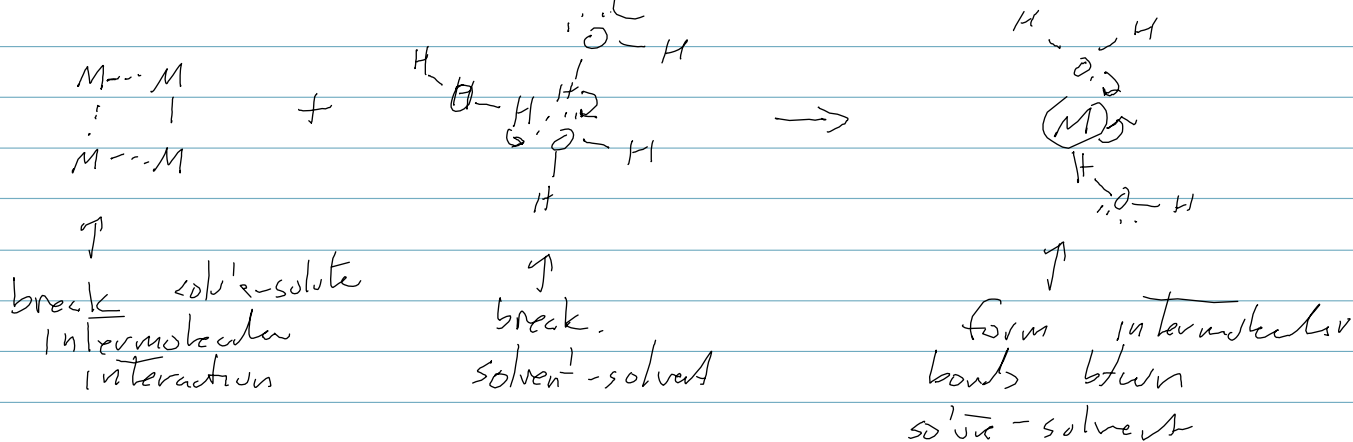 M---M + H O-H O-H → H O H
M---M H O-H M
H H
O-H
break solute-solute
intermolecular
interaction
break.
solvent-solvent
form intermolecular
bonds btwn
solute-solvent